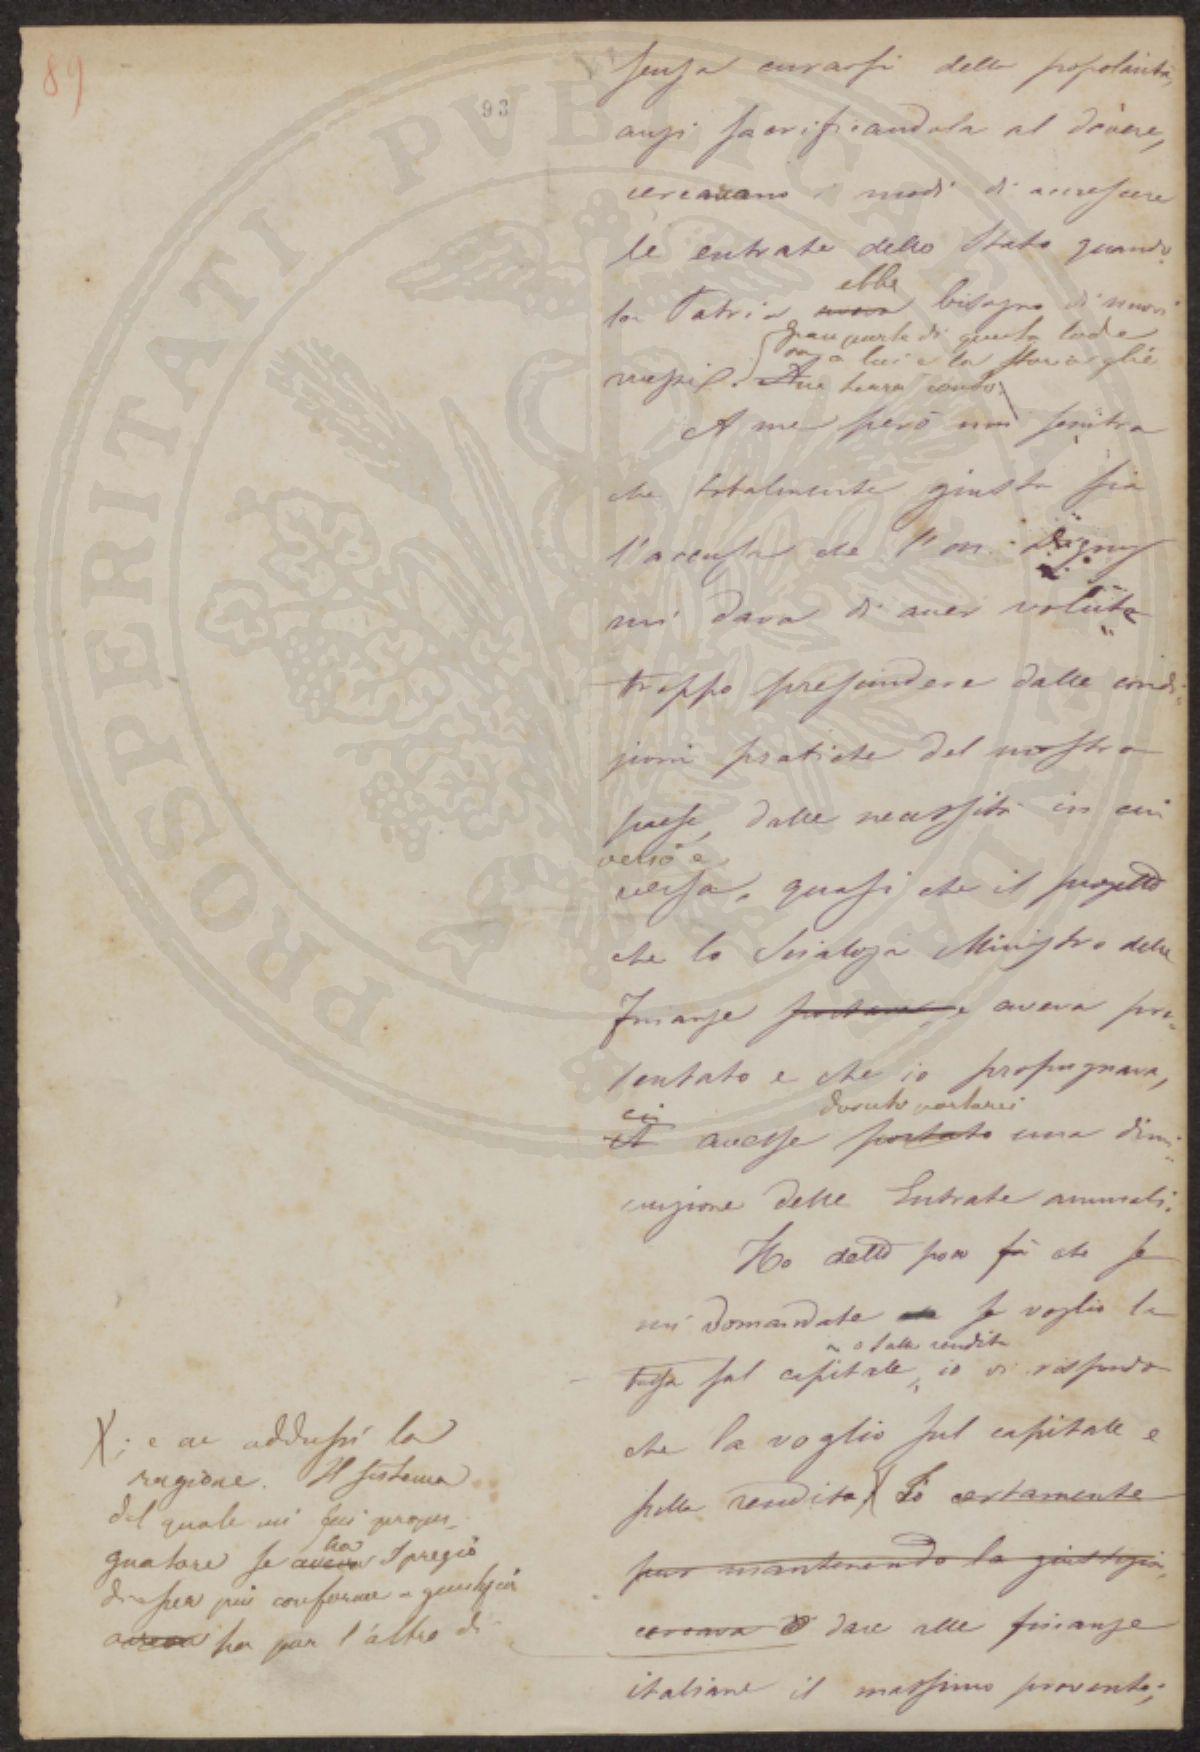 89
93
senza curarsi della popolarità,
anzi sacrificandola al dovere,
cercavano i modi di accrescere
le entrate dello Stato quando
ebbe
la Patria aveva bisogno di nuovi
gran parte di questa lode
va a lui e la storia gliè
mezzi. ne terrà conto.
A me però non sembra
che totalmente giusta sia
l'accusa che l'on. Digny
mi dava di aver voluto
troppo prescindere dalle condi-
zioni pratiche del nostro
paese, dalle necessità in cui
versò e
versa, quasi che il progetto
che lo Scialoja Ministro delle
Finanze portava, e aveva pre-
sentato e che io propugnava,
ci dovuto portarci
avesse portato una dimi-
nuzione delle Entrate annuali.
Ho detto poco fà che se
mi domandate se voglio la
o sulla rendita
tassa sul capitale, io vi rispondo
che la voglio sul capitale e
sulla rendita X Io certamente
pur mantenendo la giustizia,
cercava di dare alle finanze
italiane il massimo provento;
X; e ne addussi la
ragione. Il sistema
del quale mi fui propu-
ha
gnatore se aveva il pregio
di esser più conforme a giustizia
aveva ha pur l'altro di
PROSPERITATI PVBLICAE AVGENDAE